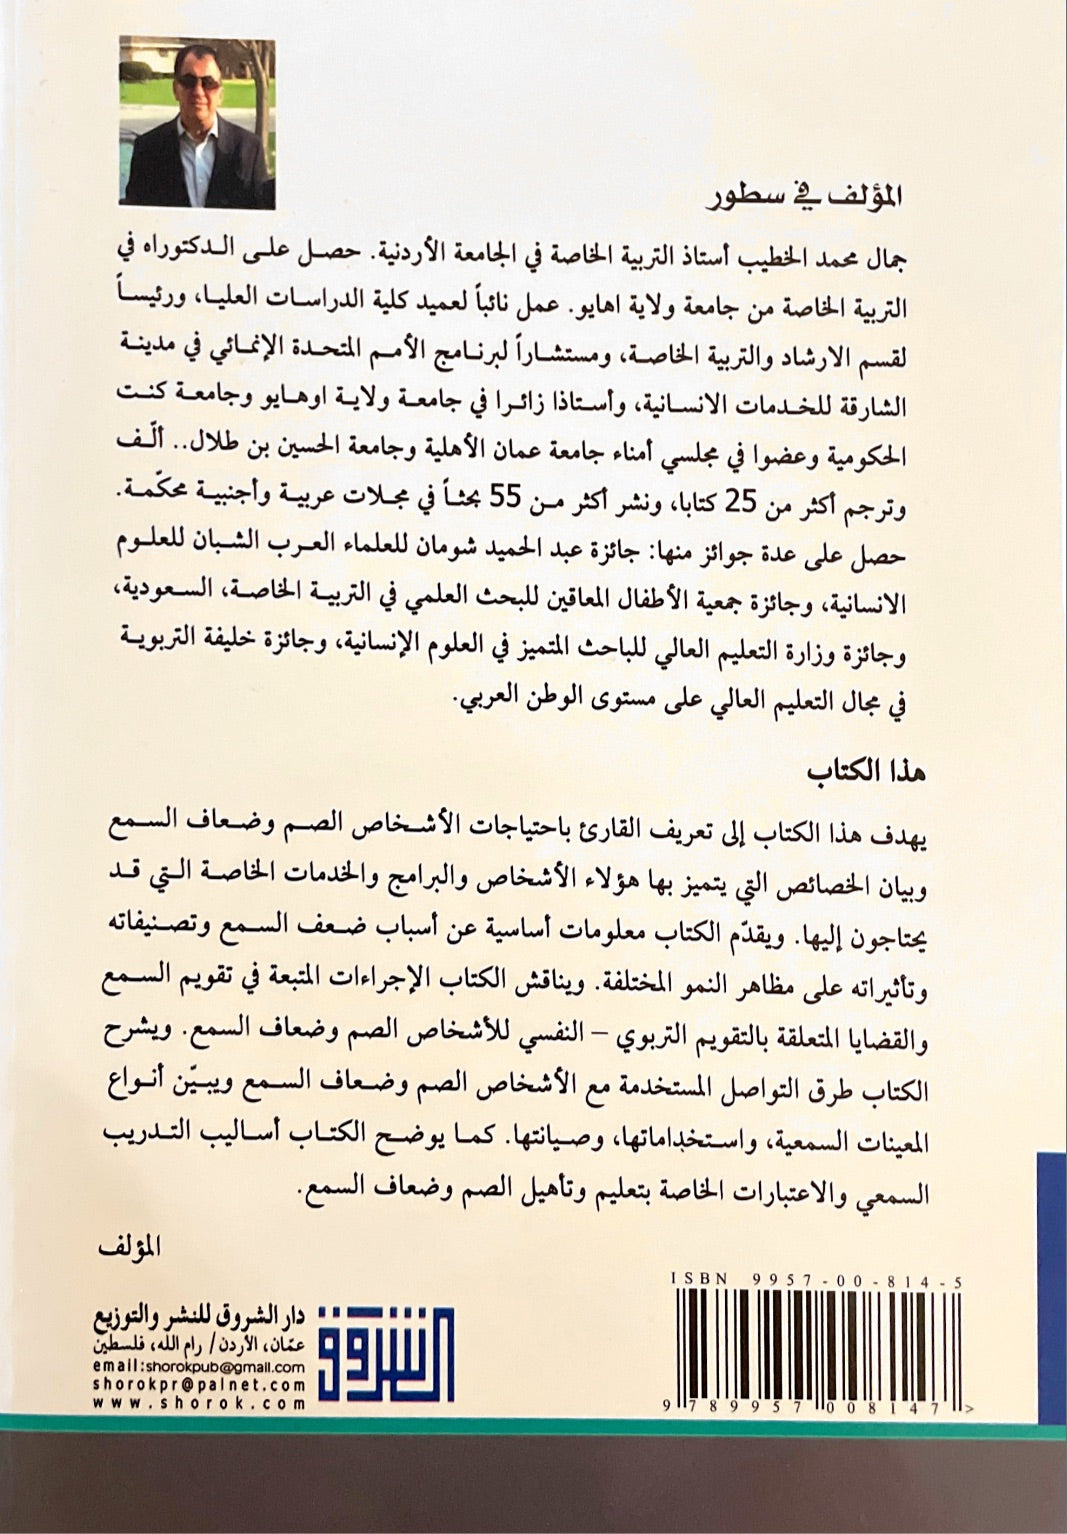 المؤلف في سطور
جمال محمد الخطيب أستاذ التربية الخاصة في الجامعة الأردنية. حصل على الدكتوراه في
التربية الخاصة من جامعة ولاية اهايو. عمل نائباً لعميد كلية الدراسات العليا، ورئيساً
لقسم الارشاد والتربية الخاصة، ومستشاراً لبرنامج الأمم المتحدة الإنمائي في مدينة
الشارقة للخدمات الانسانية، وأستاذا زائرا في جامعة ولاية اوهايو وجامعة كنت
الحكومية وعضوا في مجلسي أمناء جامعة عمان الأهلية وجامعة الحسين بن طلال.. ألّف
وترجم أكثر من 25 كتابا، ونشر أكثر من 55 بحثاً في مجلات عربية وأجنبية محكّمة.
حصل على عدة جوائز منها: جائزة عبد الحميد شومان للعلماء العرب الشبان للعلوم
الانسانية، وجائزة جمعية الأطفال المعاقين للبحث العلمي في التربية الخاصة، السعودية،
وجائزة وزارة التعليم العالي للباحث المتميز في العلوم الإنسانية، وجائزة خليفة التربوية
في مجال التعليم العالي على مستوى الوطن العربي.
هذا الكتاب
يهدف هذا الكتاب إلى تعريف القارئ باحتياجات الأشخاص الصم وضعاف السمع
وبيان الخصائص التي يتميز بها هؤلاء الأشخاص والبرامج والخدمات الخاصة التي قد
يحتاجون إليها. ويقدّم الكتاب معلومات أساسية عن أسباب ضعف السمع وتصنيفاته
وتأثيراته على مظاهر النمو المختلفة. ويناقش الكتاب الإجراءات المتبعة في تقويم السمع
والقضايا المتعلقة بالتقويم التربوي – النفسي للأشخاص الصم وضعاف السمع. ويشرح
الكتاب طرق التواصل المستخدمة مع الأشخاص الصم وضعاف السمع ويبيّن أنواع
المعينات السمعية، واستخداماتها، وصيانتها. كما يوضح الكتاب أساليب التدريب
السمعي والاعتبارات الخاصة بتعليم وتأهيل الصم وضعاف السمع.
المؤلف
ISBN 9957-00-814-5
9 789957 008147 >
الشروق
دار الشروق للنشر والتوزيع
عمّان، الأردن/ رام الله، فلسطين
email:shorokpub@gmail.com
shorokpr@palnet.com
www.shorok.com